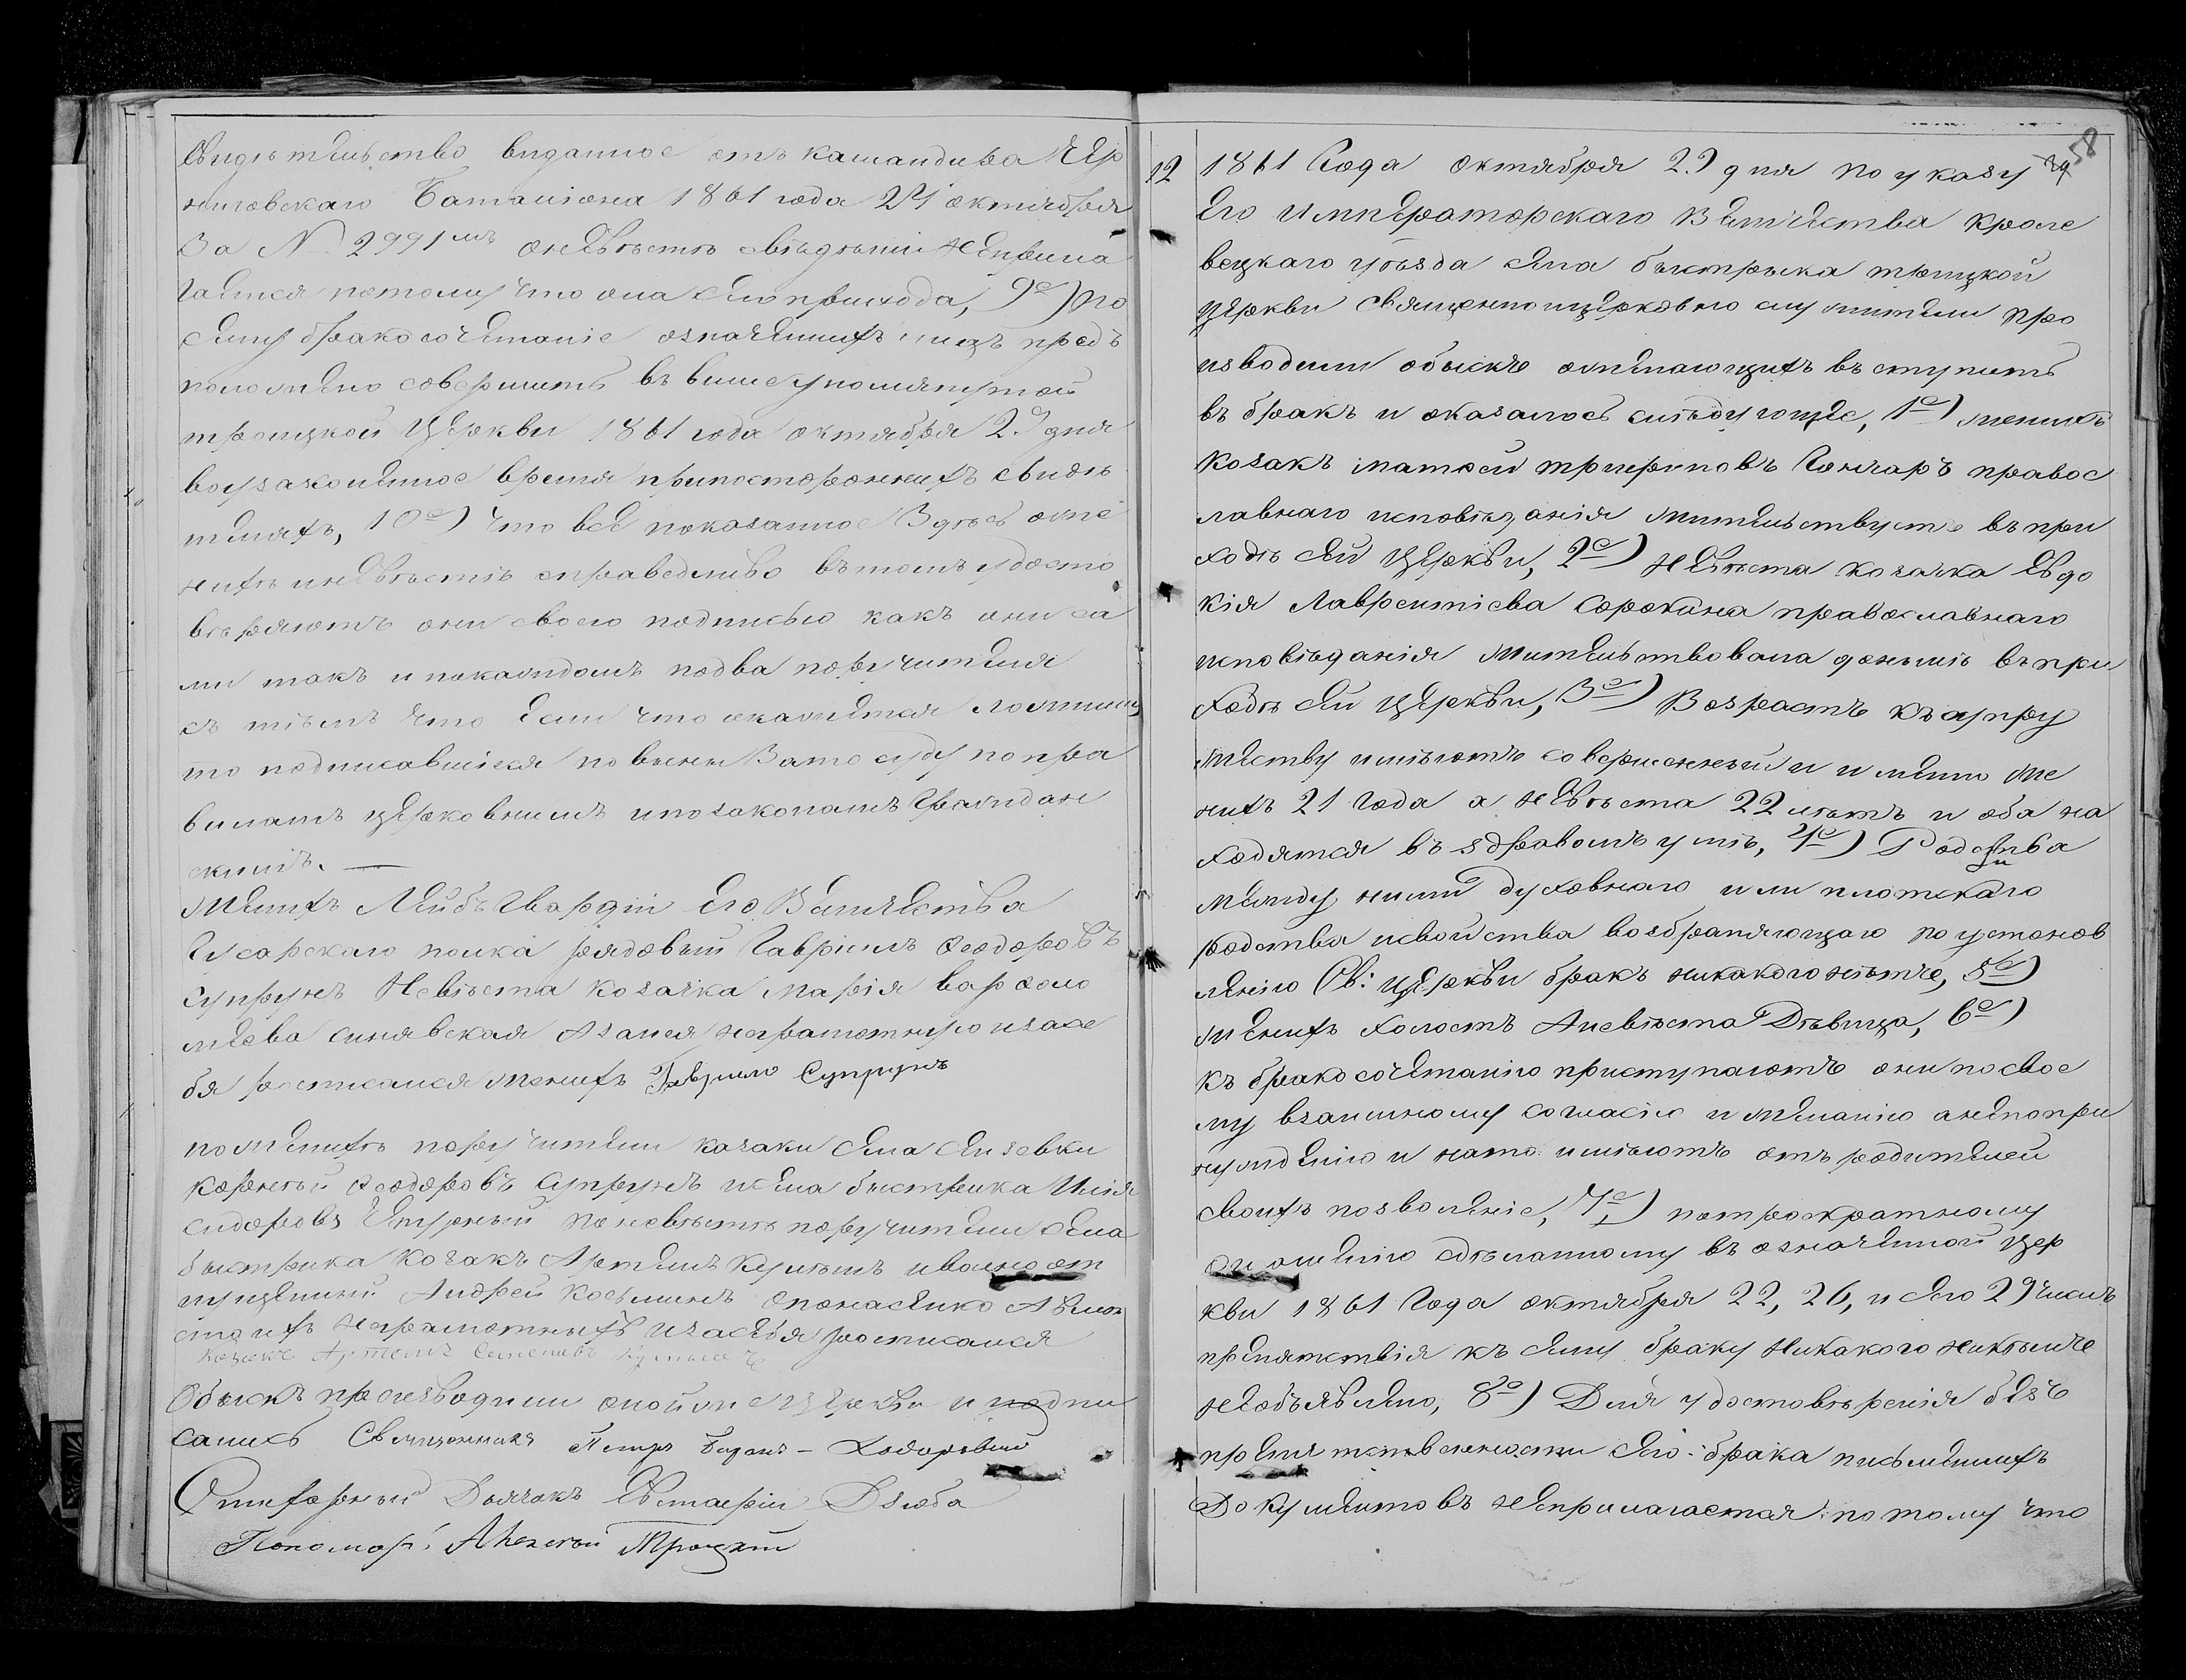 Свидѣтельство виданное отъ камандира Чер
ниговскаго Баталіона 1861 года 24 октября
За № 2991мъ оневѣстѣ свѣдѣній неприла
гается потому что она сего прихода, 9е) По
сему бракосочетаніе означенныхъ лицъ пред
положено совершить въ вишеупомянутой
троицкой Церкви 1861 года октября 29 дня
воузаконенное время припостороннихъ свидѣ
теляхъ, 10е) Что всё показанное Здѣсь оже
нихѣ иневѣстѣ справедливо вътомъ удосто
вѣряютъ они своею подписью какъ они са
ми такъ и покаждомъ подва поручителя
съ тѣмъ что если что окажется ложнимъ
то подписавшіеся повинны Зато суду попра
виламъ церковнимъ ипозаконамъ Граждан
скимъ. —
Женихъ Лейбъ Гвардіи Его Величества
Гусарскаго полка рядовый Гавріилъ Ѳеодоровъ
Супрунъ Невѣста козачка Марія варѳоло
меева синявская Азанея неграмотную изасе
бя росписался женихъ Гаврило Супрунъ
поженихѣ поручители казаки села
корнѣй Ѳеодоровъ Супрунъ исела быстрика Илія
сидоровъ поневѣстѣ поручители села
быстрика Козакъ Артемъ Кулишъ иволноот
пущенный Андрей Косьминъ Опонасенко Авмѣ
сто ихъ неграмотныхъ изасебя росписался
Козакъ Артемъ Семеновъ Кулишъ
Обыскъ производили онойже Церкви и подпи
сались Священникъ Петръ - Ходоровскій
Стихарный Дьячокъ Евстафій Дзюба
Пономарь Алексѣй Троцкій
58
12 1861 Года октября 29 дня по указу
Его Императорскаго Величества кроле
вецкаго уѣзда села быстрыка троицкой
Церкви Священноицерковно служители про
изводили обыскъ ожелающихъ въступить
въ бракъ и оказалось слѣдующее, 1е) женихъ
Козакъ матѳей Гончаръ правос
лавнаго исповѣданія жительствуетъ въпри
ходѣ сей Церкви, 2е) невѣста козачка Евдо
кія Лаврентіева Сорокина православнаго
исповѣданія жительствовала донынѣ въпри
ходѣ сей Церкви, 3е) Возрастъ къ супру
жеству имѣютъ совершенный и именно же
нихъ 21 года а невѣста 22 лѣтъ и оба на
ходятся въ здравомъ умѣ, 4е) Родства
между ними духовнаго или плотскаго
родства исвойства возбраняющаго по установ
ленію Св: Церкви бракъ никакого нѣтъ, 5е)
женихъ холостъ Аневѣста Дѣвица, 6е)
Къ бракосочетанію приступаютъ они посвое
му взаимному согласію и желанію анепопри
нужденію и нато имѣютъ отъ родителей
своихъ позволеніе, 7е) потроекратному
оглашенію сдѣланному въ означенной цер
кви 1861 Года октября 22, 26, и сего 29 чиселъ
препятствія къ сему браку Никакого никѣмъ
необъявлено, 8е) Для удостовѣренія безъ
препятственности сего брака письменныхъ
Документовъ неприлагается: потому что